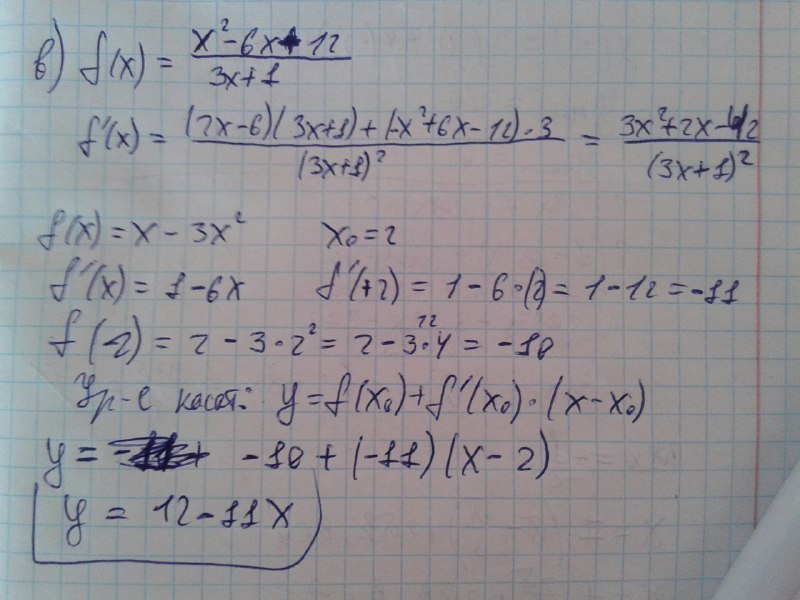 в) f(x) = (x²-6x+12)/(3x+1)
f'(x) = ((2x-6)(3x+1)+(-x²+6x-12)·3)/(3x+1)² = (3x²+2x-42)/(3x+1)²
f(x) = x - 3x² x₀ = 2
f'(x) = 1-6x f'(+2) = 1-6·(2) = 1-12 = -11
f(2) = 2-3·2² = 2-3·4 = -10
Ур-е касат: y=f(x₀)+f'(x₀)·(x-x₀)
y = -10+(-11)(x-2)
y = 12-11x